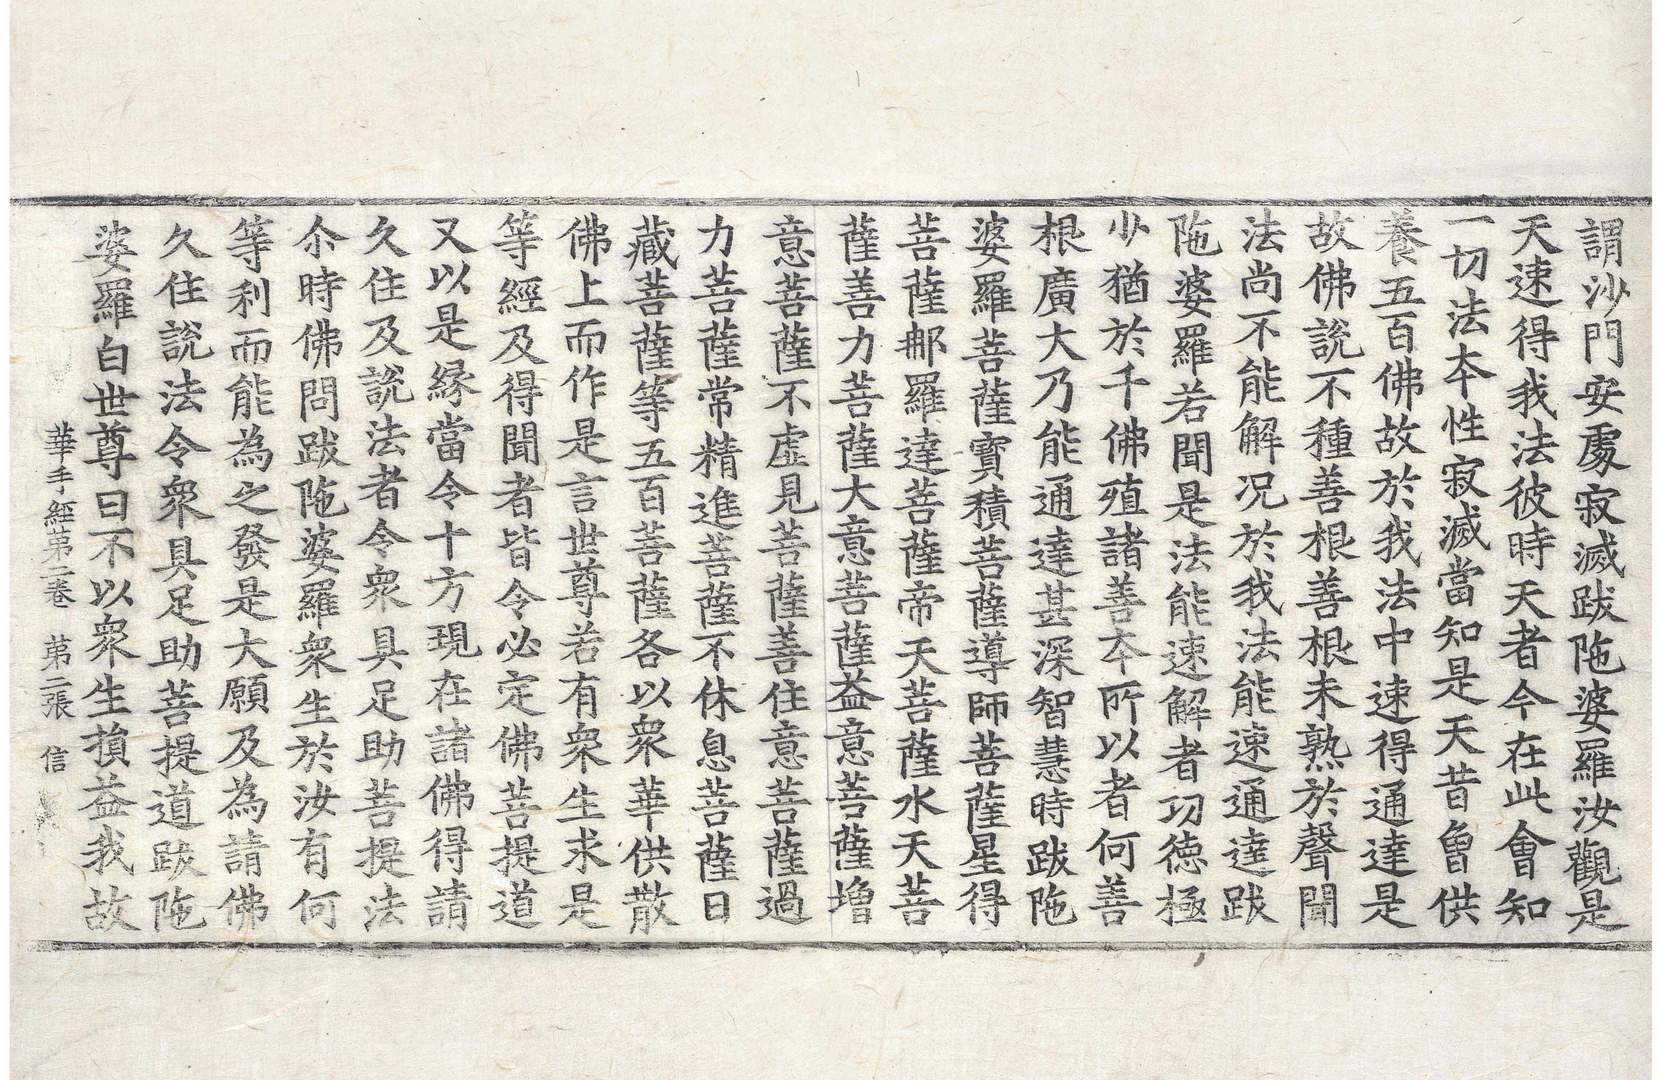 謂沙門安處寂滅跋陁婆羅汝觀是
天速得我法彼時天者今在此會知
一切法夲性寂滅當知是天昔曾供
養五百佛故於我法中速得通達是
故佛說不種善根善根未熟於聲聞
法尚不能解况於我法能速通達跋
陁婆羅若聞是法能速解者功德極
少猶於千佛殖諸善夲所以者何善
根廣大乃能通達甚深智慧時跋陁
婆羅菩薩寳積菩薩導師菩薩星得
菩薩那羅達菩薩帝天菩薩水天菩
薩善力菩薩大意菩薩益意菩薩增
意菩薩不虛見菩薩善住意菩薩過
力菩薩常精進菩薩不休息菩薩日
藏菩薩等五百菩薩各以衆華供散
佛上而作是言世尊若有衆生求是
等經及得聞者皆令必定佛菩提道
又以是緣當令十方現在諸佛得請
久住及說法者令衆具足助菩提法
尒時佛問跋陁婆羅衆生於汝有何
等利而能為之發是大願及為請佛
久住說法令衆具足助菩提道跋陁
婆羅白世尊曰不以衆生損益我故
華手經苐二卷 苐二張 信